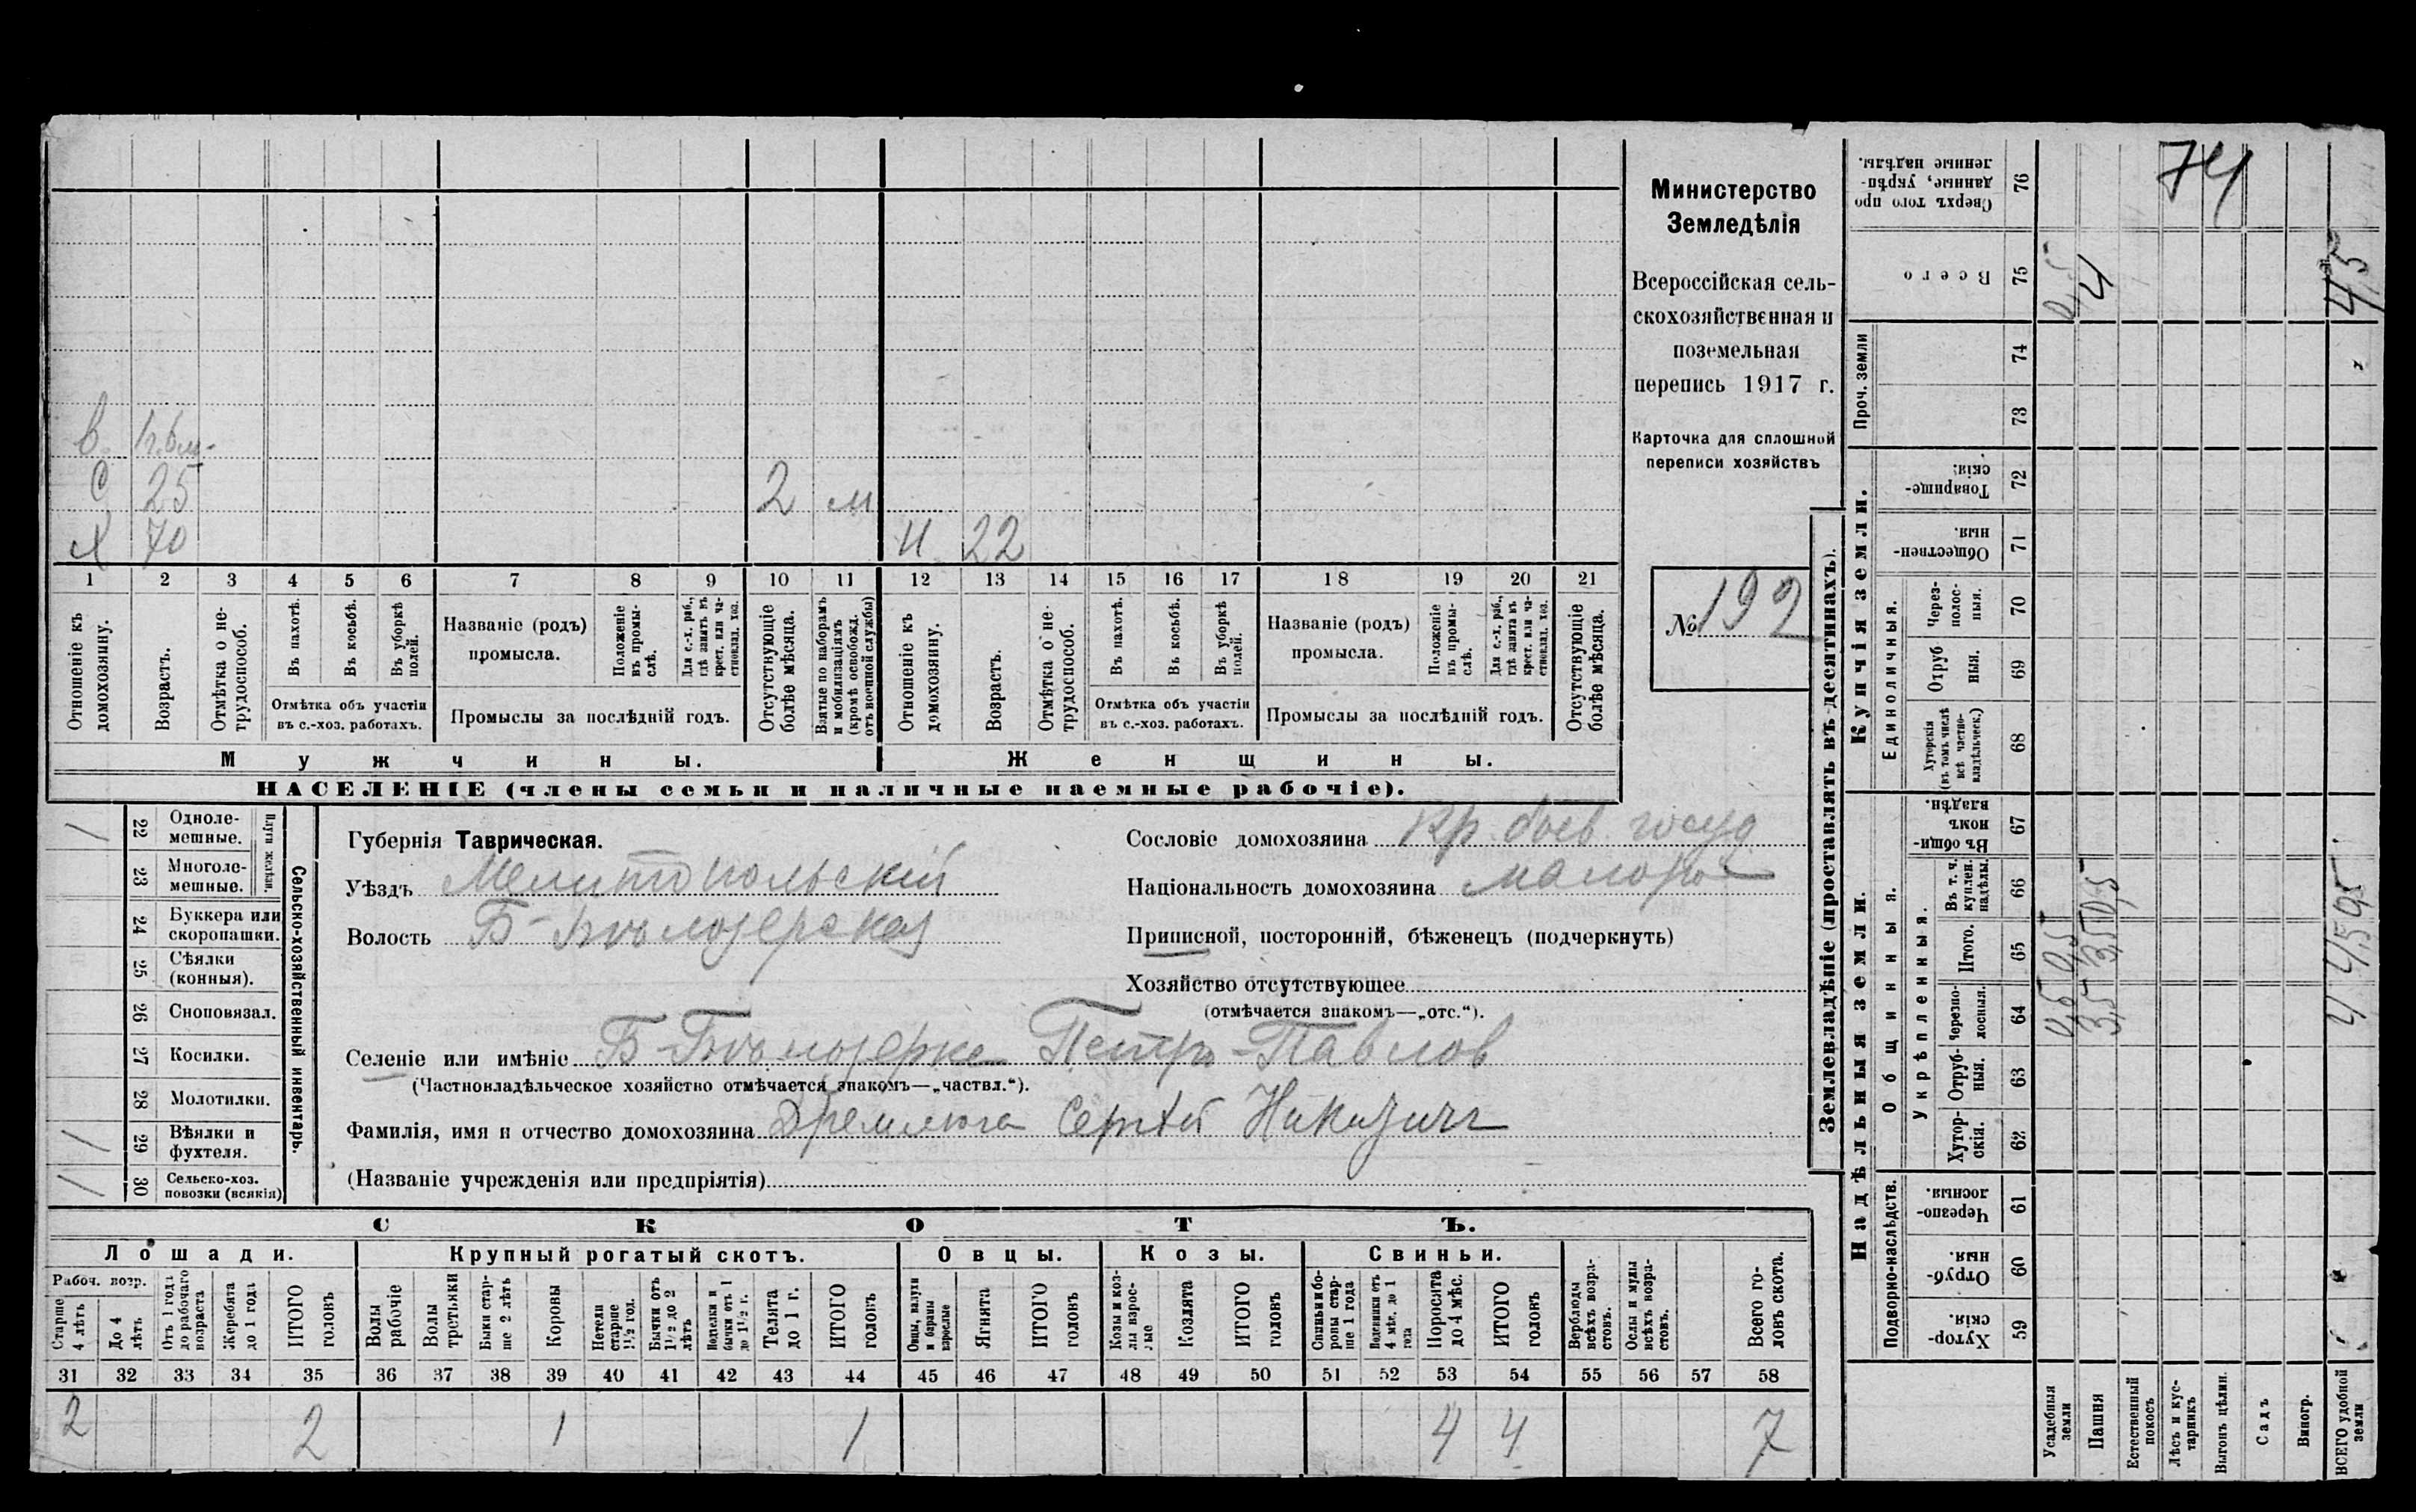 74
Министерство
Земледѣлія
Всероссійская сель-
скохозяйственная и
поземельная
перепись 1917 г.
Карточка для сплошной
переписи хозяйствъ
№ 192
в. 1 г. 6 м.
С 25 2 м
Х 70 И 22
1 2 3 4 5 6 7 8 9 10 11 12 13 14 15 16 17 18 19 20 21
Отношеніе къ домохозяину.
Возрастъ.
Отмѣтка о не-трудоспособ.
Въ пахотѣ.
Въ косьбѣ.
Въ уборкѣ полей.
Отмѣтка объ участіи
въ с.-хоз. работахъ.
Названіе (родъ)
промысла.
Положеніе въ промы-слѣ.
Для с.-х. раб., гдѣ занятъ въ крест. или ча-стновлад. хоз.
Промыслы за послѣдній годъ.
Отсутствующіе болѣе мѣсяца.
Взятые по наборамъ и мобилизаціямъ (кромѣ освобожд. отъ военной службы)
Отношеніе къ домохозяину.
Возрастъ.
Отмѣтка о не-трудоспособ.
Въ пахотѣ.
Въ косьбѣ.
Въ уборкѣ полей.
Отмѣтка объ участіи
въ с.-хоз. работахъ.
Названіе (родъ)
промысла.
Положеніе въ промы-слѣ.
Для с.-х. раб., гдѣ занята въ крест. или ча-стновлад. хоз.
Промыслы за послѣдній годъ.
Отсутствующіе болѣе мѣсяца.
Мужчины. Женщины.
НАСЕЛЕНІЕ (члены семьи и наличные наемные рабочіе).
Сельско-хозяйственный инвентарь.
Плуги желѣзн.
22 Одноле-мешные. 1
23 Многоле-мешные.
24 Буккера или скоропашки.
25 Сѣялки (конныя).
26 Сноповязал.
27 Косилки.
28 Молотилки.
29 Вѣялки и фухтеля. 1
30 Сельско-хоз. повозки (всякія) 1
Губернія Таврическая.
Уѣздъ Мелитопольскій
Волость Б-Бѣлозерская
Сословіе домохозяина Кр. быв. госуд
Національность домохозяина малорос
Приписной, посторонній, бѣженецъ (подчеркнуть)
Хозяйство отсутствующее
(отмѣчается знакомъ—„отс.“).
Селеніе или имѣніе Б-Бѣлозерка Петро-Павлов
(Частновладѣльческое хозяйство отмѣчается знакомъ—„частвл.“).
Фамилія, имя и отчество домохозяина Дремлюга Сергѣй Никизич
(Названіе учрежденія или предпріятія)
СКОТЪ.
Лошади. Крупный рогатый скотъ. Овцы. Козы. Свиньи.
Рабоч. возр.
Старше 4 лѣтъ
До 4 лѣтъ
Отъ 1 года до рабочаго возраста
Жеребята до 1 года
ИТОГО головъ
Волы рабочіе
Волы третьяки
Быки стар-ше 2 лѣтъ
Коровы
Нетели старше 1½ год.
Бычки отъ 1½ до 2 лѣтъ
Подтелки и бычки отъ 1 до 1½ г.
Телята до 1 г.
ИТОГО головъ
Овцы, валухи и бараны взрослые
Ягнята
ИТОГО головъ
Козы и коз-лы взрос-лые
Козлята
ИТОГО головъ
Свиньи и бо-ровы стар-ше 1 года
Подсвинки отъ 4 мѣс. до 1 года
Поросята до 4 мѣс.
ИТОГО головъ
Верблюды всѣхъ возра-стовъ.
Ослы и мулы всѣхъ возра-стовъ.
Всего го-ловъ скота.
31 32 33 34 35 36 37 38 39 40 41 42 43 44 45 46 47 48 49 50 51 52 53 54 55 56 57 58
2 2 1 1 4 4 7
Землевладѣніе (проставлять въ десятинахъ).
Надѣльныя земли. Купчія земли. Проч. земли
Подворно-наслѣдств. Общинныя. Единоличныя.
Укрѣпленныя.
59 Хутор-скія.
60 Отруб-ныя.
61 Черезпо-лосныя.
62 Хутор-скія.
63 Отруб-ныя.
64 Черезпо-лосныя.
65 Итого.
66 Въ т. ч. куплен. надѣлы.
67 Въ общин-номъ владѣн.
68 Хуторскія (въ томъ числѣ всѣ частно-владѣльческ.)
69 Отруб-ныя.
70 Через-полос-ныя.
71 Обществен-ныя.
72 Товарище-скія.
73
74
75 Всего
76 Сверхъ того про-данные, укрѣп-ленные надѣлы.
Усадебныя земли 0,5
Пашня 3,5 3,5 0,5 4
Естественный покосъ
Лѣсъ и кус-тарникъ
Выгонъ цѣлин.
Садъ
Виногр.
ВСЕГО удобной земли 4 4,5 0,5 4,5